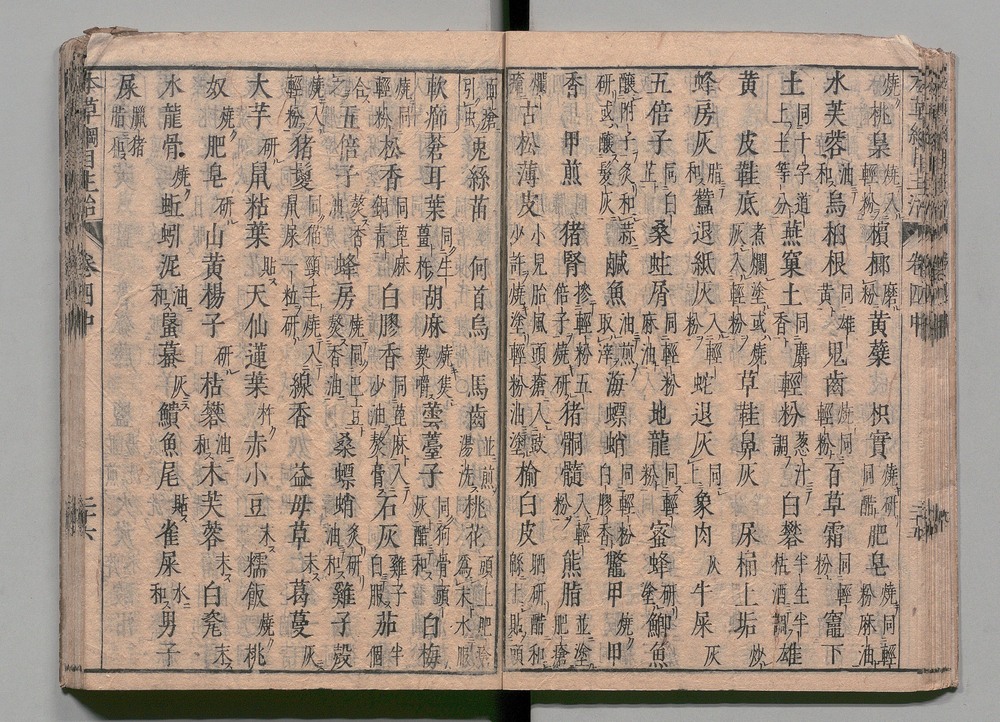 燒桃梟燒入輕粉檳榔磨粉黃蘗 枳實燒研同醋肥皂燒同輕粉麻油
水芙蓉油和烏桕根同雄黃兒齒燒同輕粉百草霜同輕粉竈下
土同十字道上土等分燕窠土同麝香輕粉葱汁調白礬半生半枯酒調雄
黃 皮鞋底煮爛塗或燒灰入輕粉草鞋鼻灰 尿桶上垢炒
蜂房灰脂和蠶退紙灰入輕粉蛇退灰同上象肉灰牛屎灰
五倍子同白芷桑蛀屑同輕粉麻油地龍同輕粉蜜蜂研塗鯽魚
釀附子炙和蒜研或釀髮灰鹹魚油煎取滓海螵蛸同輕粉白膠香鼈甲燒甲
香 甲煎 豬腎摻輕粉五倍子燒研豬胴髓入輕粉熊脂並塗肥瘡
爛瘡古松薄皮小兒胎風頭瘡入豉少許燒塗輕粉油塗榆白皮晒研醋和綿上貼頭
面瘡引虫兎絲苗 何首烏 馬齒並煎湯洗桃花頭上肥瘡爲末水服
軟癤蒼耳葉同生薑杵胡麻燒焦熱嚼蕓薹子同狗頭骨灰醋和白梅
燒同輕粉松香同蓖麻銅青白膠香同蓖麻入少油熬膏石灰雞子白服茄半個
合之五倍子熬香油蜂房燒同巴豆熬香油桑螵蛸炙研油和雞子殼
燒入輕粉豬鬉同猫頸毛燒入鼠屎一粒研線香 益母草末葛蔓灰
大芋研鼠粘葉貼天仙蓮葉杵赤小豆末糯飯燒桃
奴燒肥皂研山黃楊子研枯礬油和木芙蓉末白瓷末
水龍骨燒蚯蚓泥油和蜃蟇灰鱝魚尾貼雀屎水和男子
屎臘豬脂和
本草綱目主治 卷四中 二十六